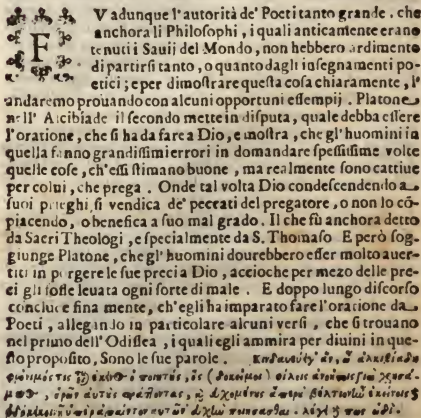 F V adunque l'autorità de' Poeti tanto grande, che
anchora li Philosophi, i quali anticamente erano
tenuti i Sauij del Mondo, non hebbero ardimento
di partirsi tanto, o quanto dagli insegnamenti po-
etici; e per dimostrare questa cosa chiaramente, l'
andaremo prouando con alcuni opportuni essempij. Platone
nell' Alcibiade il secondo mette in disputa, quale debba essere
l'oratione, che si ha da fare a Dio, e mostra, che gl' huomini in
quella fanno grandissimi errori in domandare spessissime volte
quelle cose, ch'essi stimano buone, ma realmente sono cattiue
per colui, che prega. Onde tal volta Dio condescendendo a
suoi prieghi, si vendica de' peccati del pregatore, o non lo cō-
piacendo, o benefica a suo mal grado. Il che fù anchora detto
da Sacri Theologi, e specialmente da S. Thomaso E però sog-
giunge Platone, che gl' huomini dourebbero esser molto auer-
titi in porgere le sue preci a Dio, accioche per mezo delle pre-
ci gli fosse leuata ogni sorte di male. E doppo lungo discorso
conclude finamente, ch'egli ha imparato fare l'oratione da
Poeti, allegando in particolare alcuni versi, che si trouano
nel primo dell' Odissea, i quali egli ammira per diuini in que-
sto proposito, Sono le sue parole.